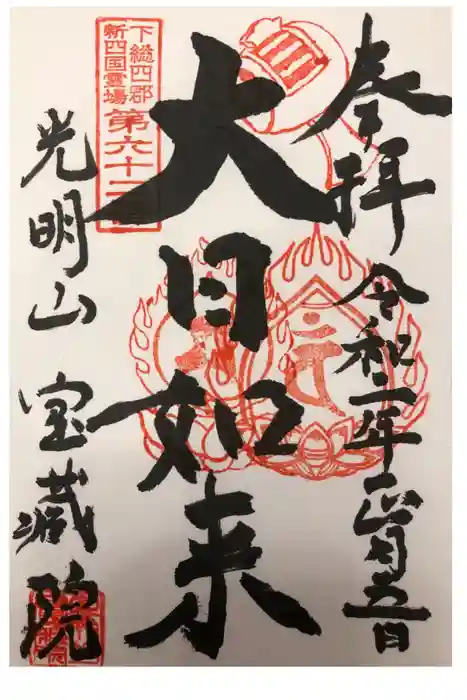 奉拝 令和二年正月五日
大日如来
下総四郡
新四国霊場
第六十二
光明山 宝蔵院